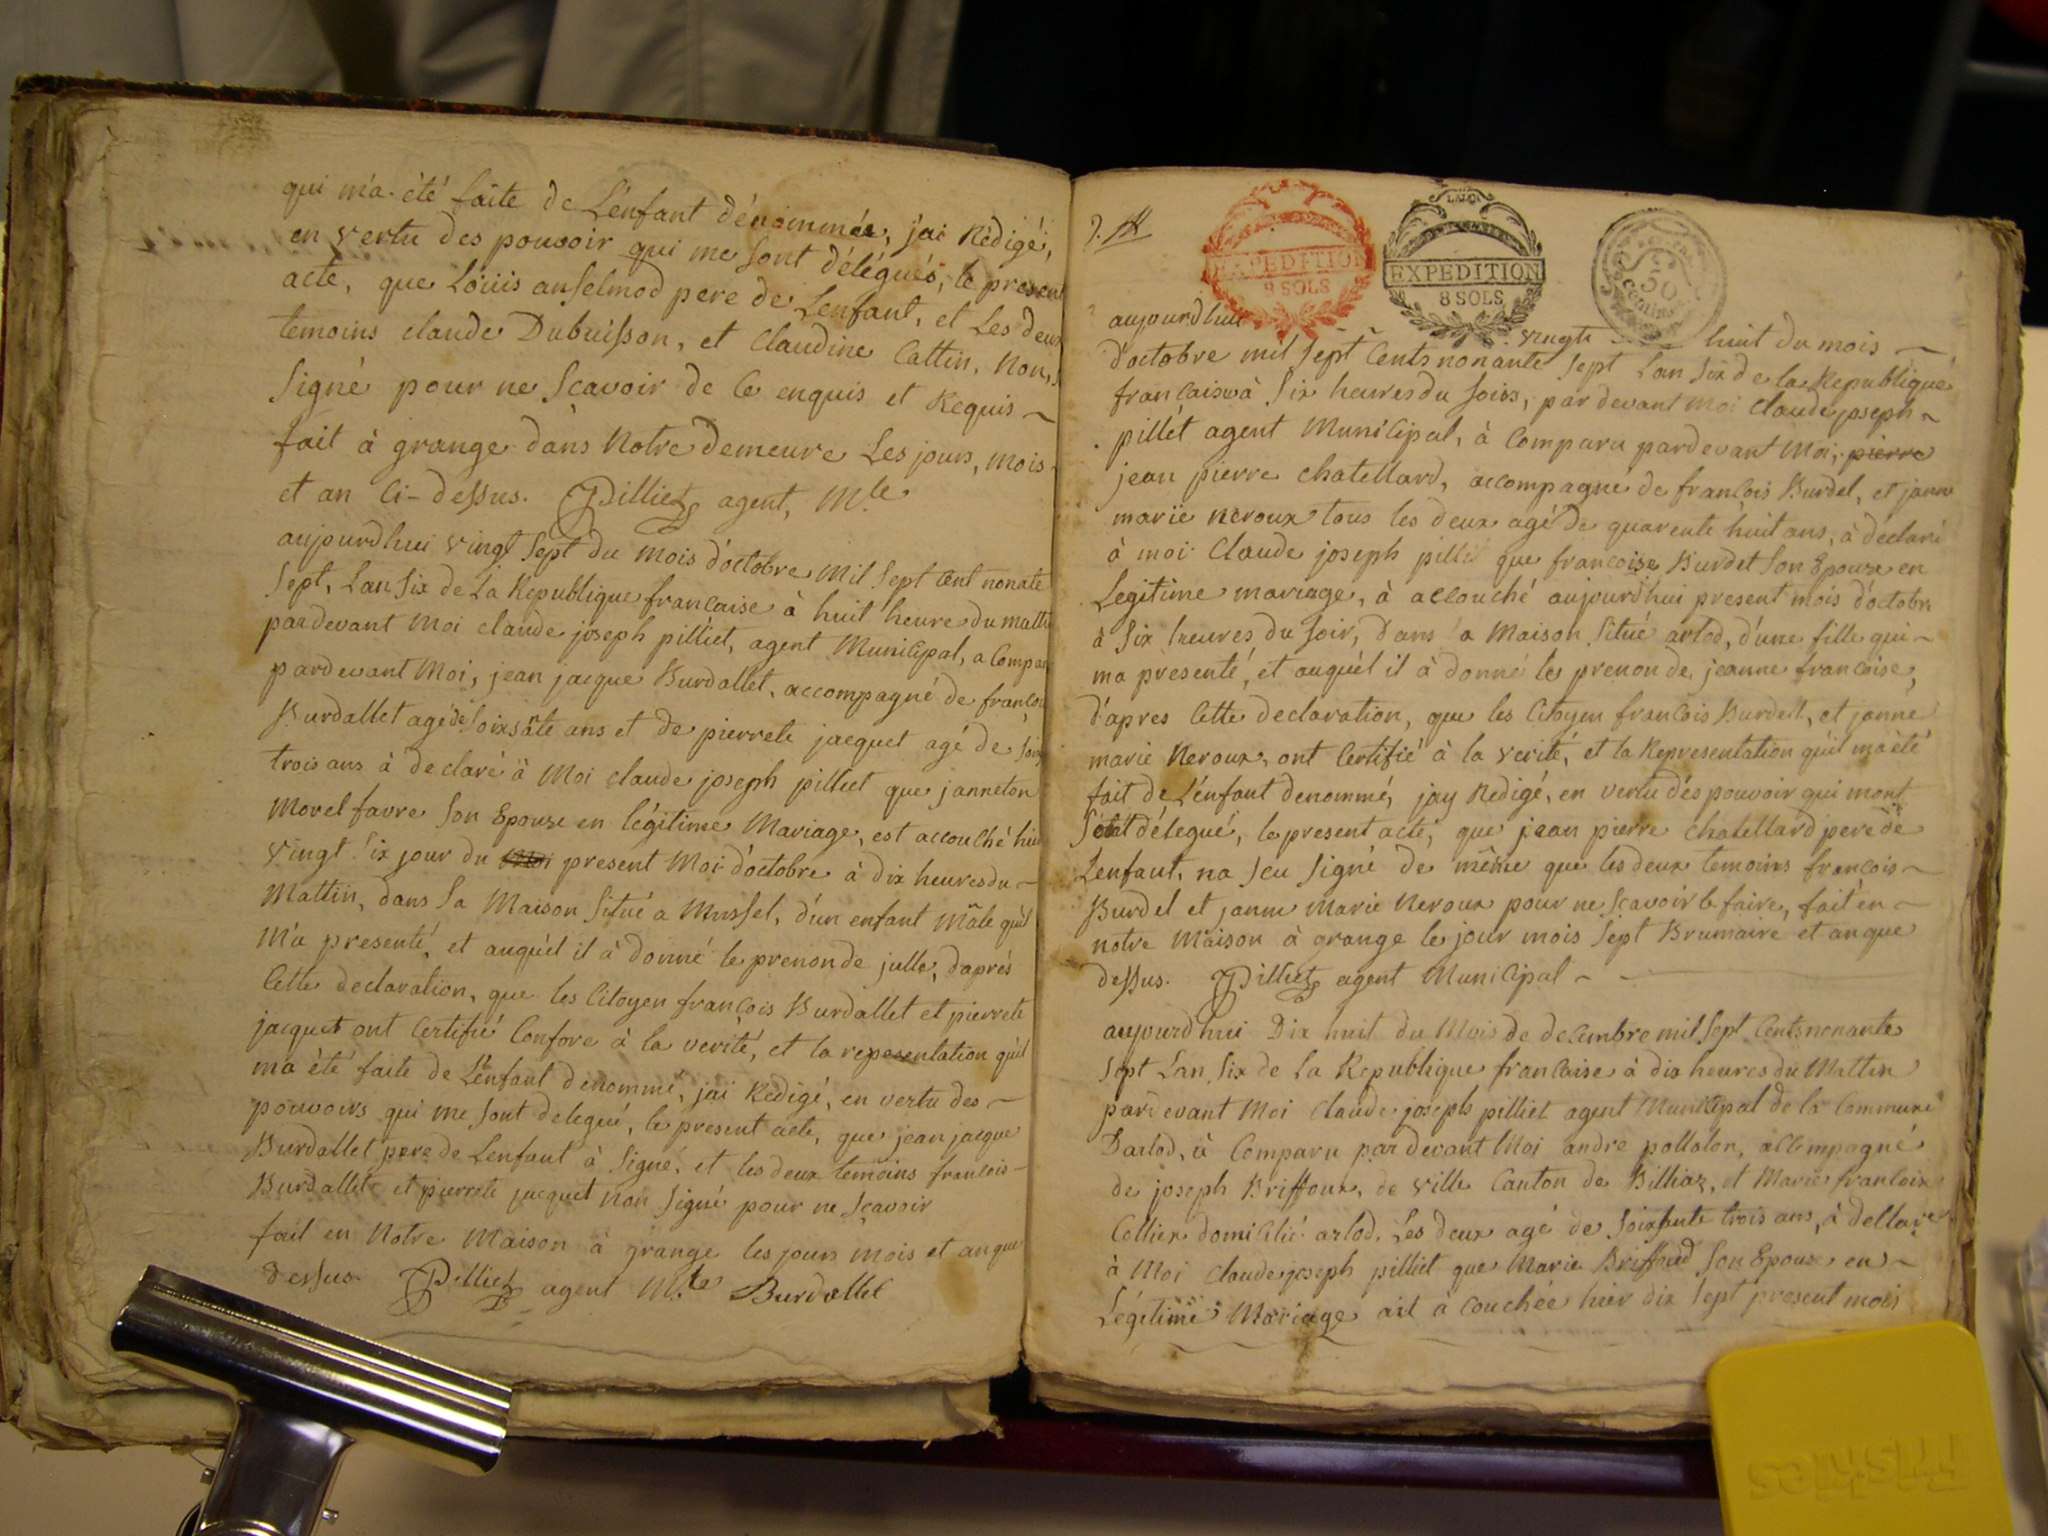 qui m'a été faite de L'énfant dénommée, j'ai Rédigé,
en vertu des pouvoir qui me sont délégués, le present
acte, que Loüis anselmod pere de Lenfant, et Les deux
temoins claude Dubuisson, et Claudine Cattin, Non,
Signé pour ne Scavoir de Ce enquis et Requis ~
fait à grange dàns Notre demeure Les jours, mois
et an Ci-dessus. Pilliet agent, M.le
aujourdhui vingt Sept du mois d'octobre Mil Sept Cent nonate
Sept, Lan Six de La Republique francaise à huit heure du mattin
pardevant Moi claude joseph pilliet, agent Municipal, a Compar
pardevant Moi, jean jacque Burdallet, accompagné de francois
Burdallet agé de Soixsãte ans et de pierrete jacquet agé de soix
trois ans à declaré à Moi claude joseph pilliet que janneton
Morel favre Son Epouze en légitime Mariage, est accouché hier
vingt Six jour du present Moi d'octobre à dix heures du ~
Mattin, dans Sa Maison Situé a Mussel, d'un enfant Mâle qu'il
M'a presenté, et auquél il à donné le prenon de julle, d'aprés
Cette declaration, que les Citoyen françois Burdallet et pierrete
jacquet ont Certifié Confore à la verité, et la representation qu'il
ma été faite de L'énfant dénommé, j'ai Redigé, en vertu des ~
pouvoirs qui me Sont delegué, le present acte, que jean jacque
Burdallet pere de Lenfant à Signé, et les deux temoins francois ~
Burdallet et pierrete jacquet non Signé pour ne Sçavoir
fait en Notre Maison à grange les jours mois et an que
dessus. Pilliet agent M.le Burdallet
EXPEDITION
8 SOLS
EXPEDITION
8 SOLS
50
aujourdhui vingte huit du mois ~
d'octobre mil Sept Cents nonante Sept Lan Six de la Republique
francaise à Six heures du Soir, par devant moi Claude joseph ~
pillét agent Municipal, à Comparu pardevant Moi, pierre
jean pierre Chatellard, accompagne de francois Burdel, et janne
marie Neroux tous les deux agé de quarente huit ans, à déclaré
à moi Claude joseph pilliet que francoise Burdet Son Epouze en
Legitime mariage, à accouché aujourdhui present mois d'octobre
à Six heures du Soir, dans Sa Maison Situé arlod, d'une fille qui ~
ma presenté, et auquél il à donné les prenon de jeanne francoise,
d'apres Cette declaration, que les Citoyen francois Burdell, et janne
marie Neroux, ont Certifié à la verité, et la Representation qu'il m'a été
fait de L'énfant denommé, jay Redigé, en vertu dés pouvoir qui mont
délegué, le present acte, que jean pierre Chatellard pere de
Lenfant, na Seu Signé de même que les deux temoins francois ~
Burdel et janne Marie Neroux pour ne Scavoir le faire, fait en ~
notre Maison à grange le jour mois Sept Brumaire et an que
dessus. Pilliet agent Municipal ~
aujourdhui Dix huit du Mois de decembre mil Sept Cents nonante
Sept Lan Six de La Republique francaise à dix heures du Mattin
pardevant Moi Claude joseph pilliet agent Municipal de la Commune
Darlod, à Comparu par devant Moi andre pollolon, accompagné
de joseph Briffoux, de ville Canton de Billiaz, et Marie francoise
Collier domicilié arlod. Les deux agé de Soixsante trois ans, à dellare
à Moi Claude joseph pilliet que Marie Briffoud Son Epouze en ~
Légitime Mariage ait à Couchée hier dix Sept present mois